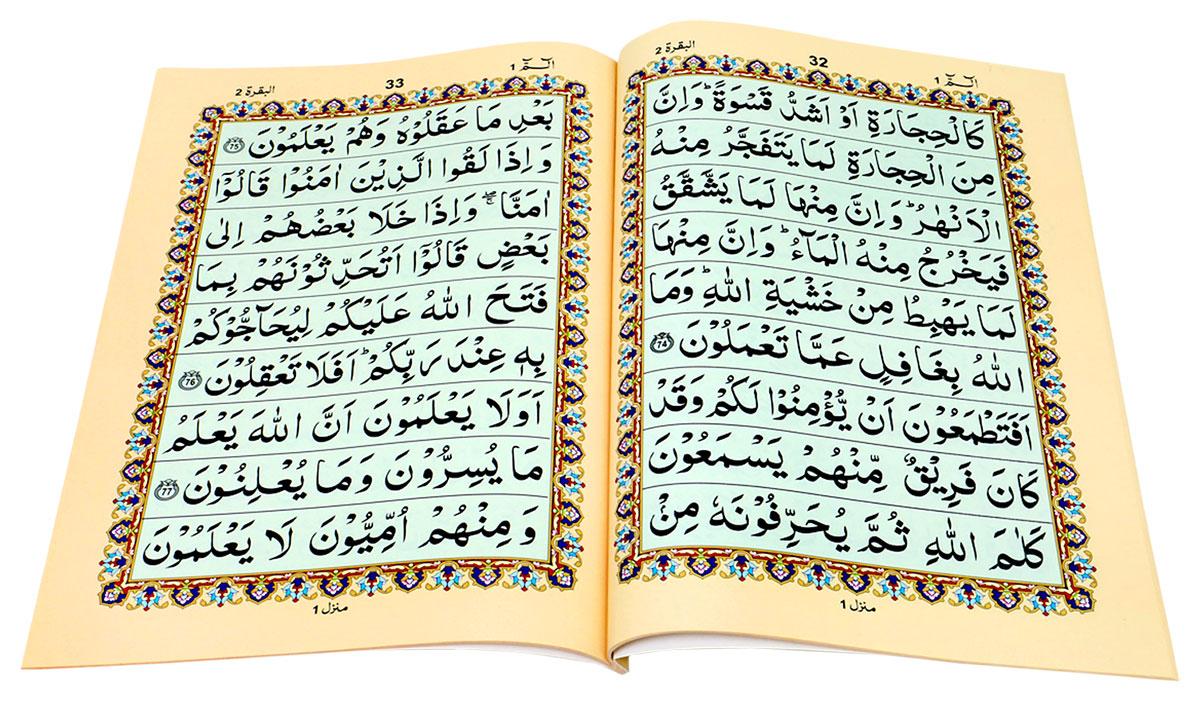 البقرة 2
32
الٓمّٓ 1
كَالْحِجَارَةِ اَوْ اَشَدُّ قَسْوَةً ؕ وَاِنَّ
مِنَ الْحِجَارَةِ لَمَا يَتَفَجَّرُ مِنْهُ
الْاَنْهٰرُ ؕ وَاِنَّ مِنْهَا لَمَا يَشَّقَّقُ
فَيَخْرُجُ مِنْهُ الْمَآءُ ؕ وَاِنَّ مِنْهَا
لَمَا يَهْبِطُ مِنْ خَشْيَةِ اللّٰهِ ؕ وَمَا
اللّٰهُ بِغَافِلٍ عَمَّا تَعْمَلُوْنَ 74
اَفَتَطْمَعُوْنَ اَنْ يُّؤْمِنُوْا لَكُمْ وَقَدْ
كَانَ فَرِيْقٌ مِّنْهُمْ يَسْمَعُوْنَ
كَلٰمَ اللّٰهِ ثُمَّ يُحَرِّفُوْنَهٗ مِنْۢ
منزل 1
البقرة 2
33
الٓمّٓ 1
بَعْدِ مَا عَقَلُوْهُ وَهُمْ يَعْلَمُوْنَ 75
وَاِذَا لَقُوا الَّذِيْنَ اٰمَنُوْا قَالُوْۤا
اٰمَنَّا ۖۚ وَاِذَا خَلَا بَعْضُهُمْ اِلٰى
بَعْضٍ قَالُوْۤا اَتُحَدِّثُوْنَهُمْ بِمَا
فَتَحَ اللّٰهُ عَلَيْكُمْ لِيُحَآجُّوْكُمْ
بِهٖ عِنْدَ رَبِّكُمْ ؕ اَفَلَا تَعْقِلُوْنَ 76
اَوَلَا يَعْلَمُوْنَ اَنَّ اللّٰهَ يَعْلَمُ
مَا يُسِرُّوْنَ وَمَا يُعْلِنُوْنَ 77
وَمِنْهُمْ اُمِّيُّوْنَ لَا يَعْلَمُوْنَ
منزل 1